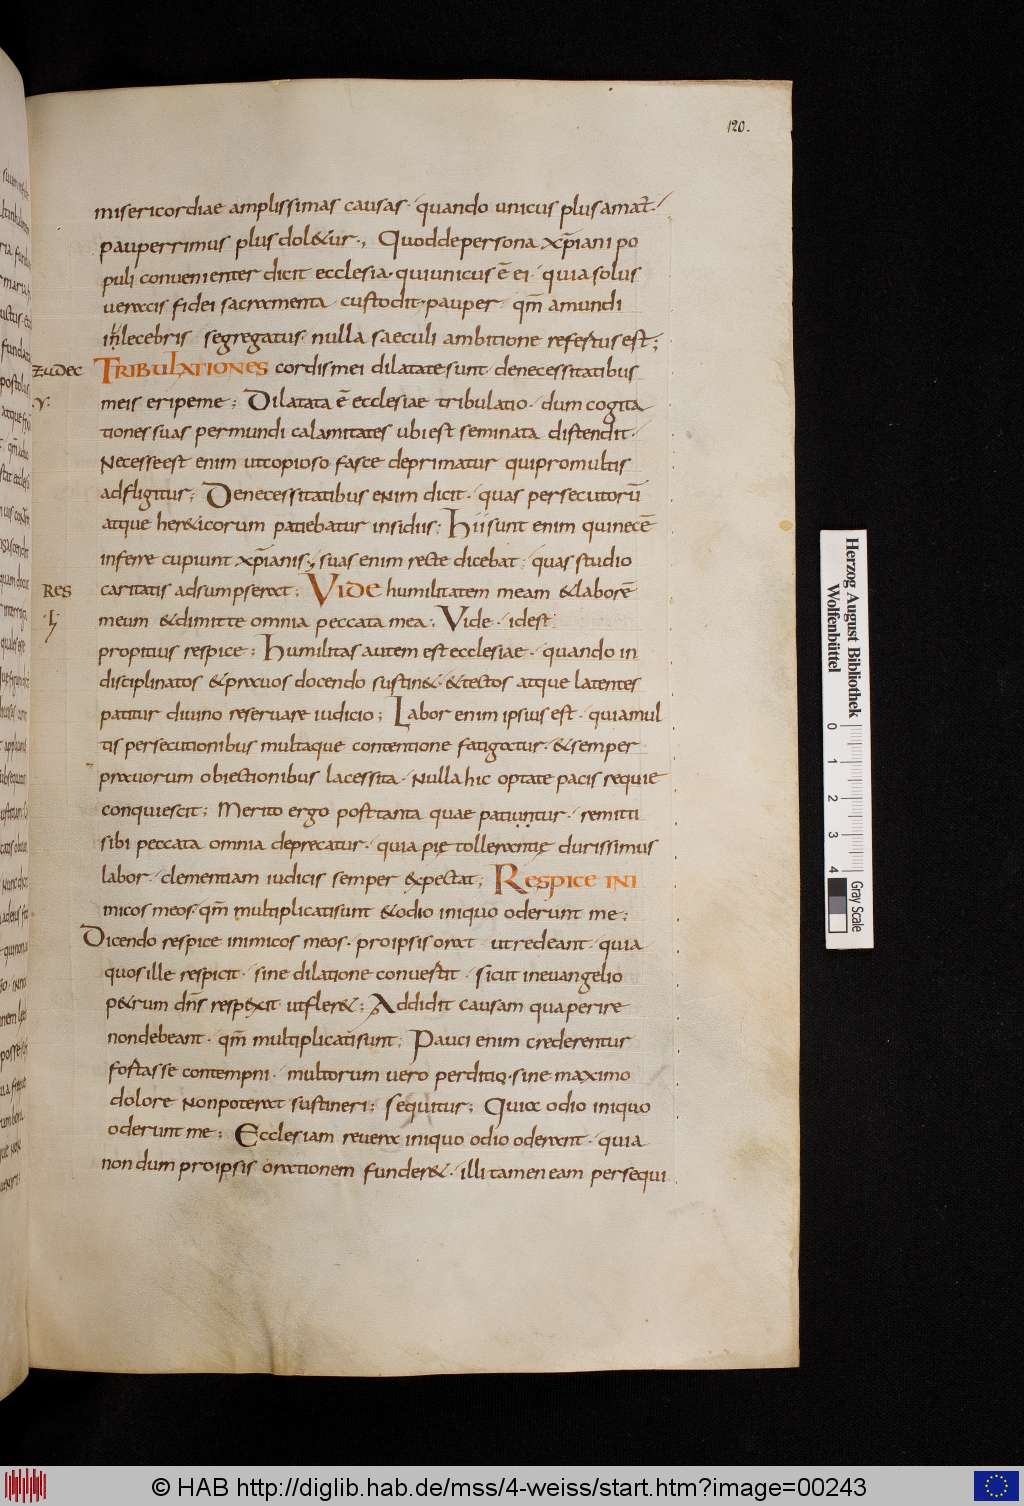 120.
misericordiae amplissimas causas · quando unicus plus amat̄ ·
pauperrimus plus dol&ur ·, Quod de persona xp̄iani po
puli convenienter dicit ecclesia · qui unicus ē ei · quia solus
veracis fidei sacramenta custodit · pauper · qm̄ a mundi
inlecebris segregatus · nulla saeculi ambitione refertus est ;
zudec
TRIBULATIONES cordis mei dilatate sunt de necessitatibus
·v·
meis eripe me ; Dilatata ē ecclesiae tribulatio · dum cogita
tiones suas per mundi calamitates ubi est seminata distendit ·
Necesse est enim ut copioso fasce deprimatur qui pro multis
adfligitur ; De necessitatibus enim dicit · quas persecutorū
atque her&icorum patiebatur insidiis ; Hii sunt enim qui necē
inferre cupiunt xp̄ianis ·, suas enim recte dicebat ; quas studio
Res
caritatis adsumpserat ; VIDE humilitatem meam & laborē
·I·
meum & dimitte omnia peccata mea ; Vide · id est
propitius respice ; Humilitas autem est ecclesiae · quando in
disciplinatos & pravos docendo sustin& · & tectos atque latentes
patitur divino reservare iudicio ; Labor enim ipsius est · quia mul
tis persecutionibus multaque contentione fatigatur · & semper
pravorum obiectionibus lacessita · Nulla hic optate pacis requie
conquiescit ; Merito ergo post tanta quae patiuntur · remitti
sibi peccata omnia deprecatur · quia pię tollerantię durissimus
labor · clementiam iudicis semper expectat ; RESPICE INI
micos meos · qm̄ multiplicati sunt & odio iniquo oderunt me ;
Dicendo respice inimicos meos · pro ipsis orat ut redeant · quia
quos ille respicit · sine dilatione convertit · sicut in evangelio
p&rum dn̄s respexit ut fler& ; Addidit causam qua perire
non debeant · qm̄ multiplicati sunt ; Pauci enim crederentur
fortasse contempni · multorum vero perditio · sine maximo
dolore Non poterat sustineri ; sequitur ; Quia odio iniquo
oderunt me ; Ecclesiam revera iniquo odio oderant · quia
non dum pro ipsis orationem funder& · illi tamen eam persequi
Herzog August Bibliothek
Wolfenbüttel
0 1 2 3 4
Gray Scale
© HAB http://diglib.hab.de/mss/4-weiss/start.htm?image=00243